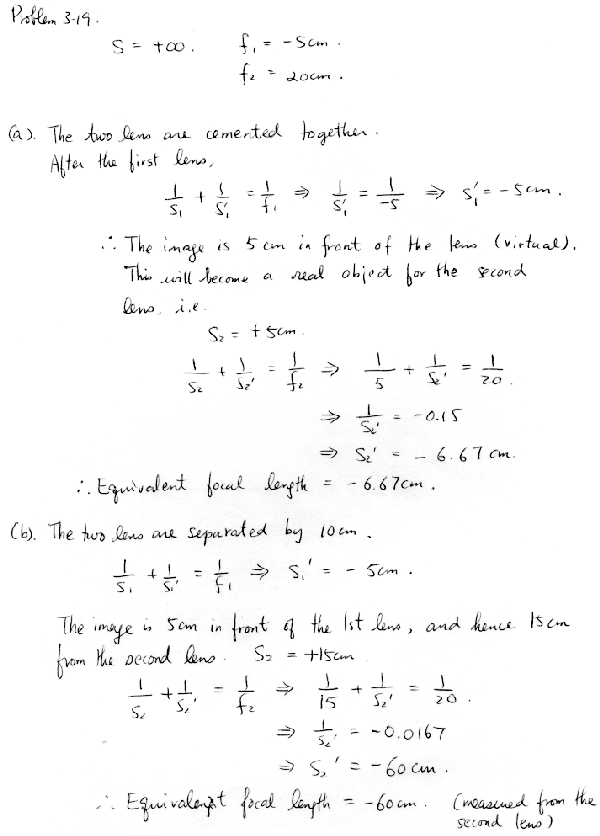 Problem 3-19.
S = +∞. f₁ = -5cm.
f₂ = 20cm.
(a). The two lens are cemented together.
After the first lens,
1/S₁ + 1/S₁' = 1/f₁ ⇒ 1/S₁' = 1/-5 ⇒ S₁' = -5cm.
∴ The image is 5cm in front of the lens (virtual).
This will become a real object for the second
lens, i.e.
S₂ = +5cm.
1/S₂ + 1/S₂' = 1/f₂ ⇒ 1/5 + 1/S₂' = 1/20.
⇒ 1/S₂' = -0.15
⇒ S₂' = -6.67cm.
∴ Equivalent focal length = -6.67cm.
(b). The two lens are separated by 10cm.
1/S₁ + 1/S₁' = 1/f₁ ⇒ S₁' = -5cm.
The image is 5cm in front of the 1st lens, and hence 15cm
from the second lens. S₂ = +15cm
1/S₂ + 1/S₂' = 1/f₂ ⇒ 1/15 + 1/S₂' = 1/20.
⇒ 1/S₂' = -0.0167
⇒ S₂' = -60cm.
∴ Equivalent focal length = -60cm. (measured from the
second lens)